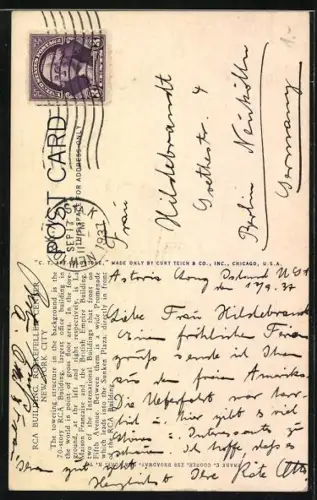 POST CARD
THIS SPACE FOR ADDRESS ONLY
SEPT
1937
Frau
Hildebrandt
Goethestr. 4
Berlin Neukölln
Germany
"C. T. MADE ONLY BY CURT TEICH & CO., INC., CHICAGO, U.S.A.
RCA BUILDING, ROCKEFELLER CENTER
NEW YORK CITY
The towering structure in the foreground is the
70-story RCA Building, largest office building in
the world in point of gross floor area. In the fore-
ground, at the left and right respectively, is La
Maison Francaise and the British Empire Building,
two of the International Buildings that front on
Fifth Avenue. Between them is a wide Promenade
which leads to the Sunken Plaza, directly in front
of the RCA Building.
Astoria Long Island
9.37
Liebe Frau Hildebrandt
Einen fröhlichen
sende ich Ihnen
aus dem freien Amerika.
Die Ueberfahrt war
hier gibt es viel
Schönes u. Interessantes zu
Ich hoffe, dass es
Ihnen gut
Herzlichst Ihre Käte Otto